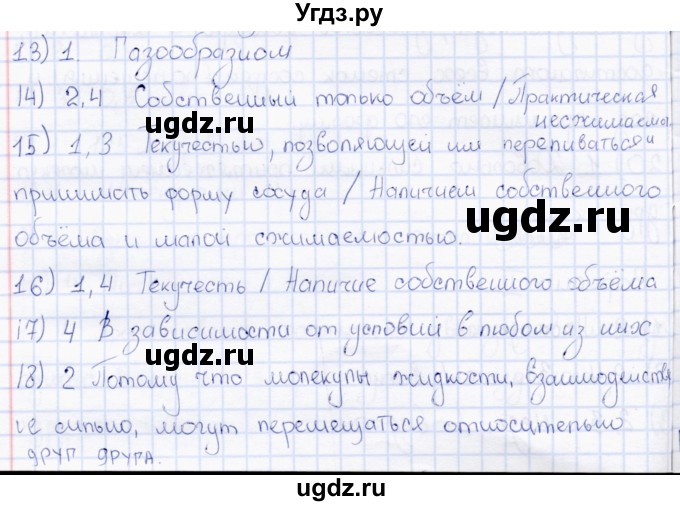 Угдз.ру
13) 1. Газообразном
14) 2,4 Собственный только объём / Практическая
несжимаемы
15) 1,3 Текучестью, позволяющей им переливаться и
принимать форму сосуда / Наличием собственного
объёма и малой сжимаемостью.
16) 1,4 Текучесть / Наличие собственного объёма
17) 4 В зависимости от условий в любом из них
18) 2 Потому что молекулы жидкости, взаимодейств
уе сильно, могут перемещаться относительно
друг друга.
ugdz.ru
ugdz.ru
ugdz.ru
ugdz.ru
ugdz.ru
ugdz.ru
ugdz.ru